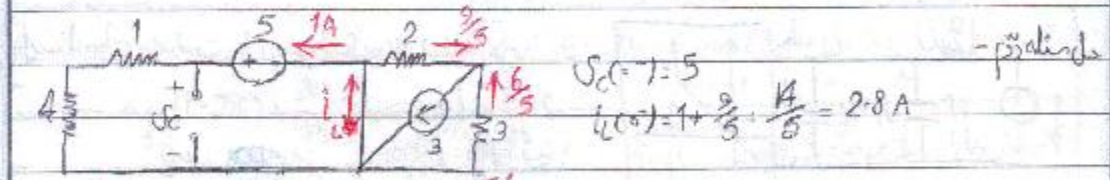 1 5 1A 2 9/5
4 + Vc - + - i L < 3 6/5 3
Vc(0-) = 5
iL(0-) = 1 + 9/5 = 14/5 = 2.8 A